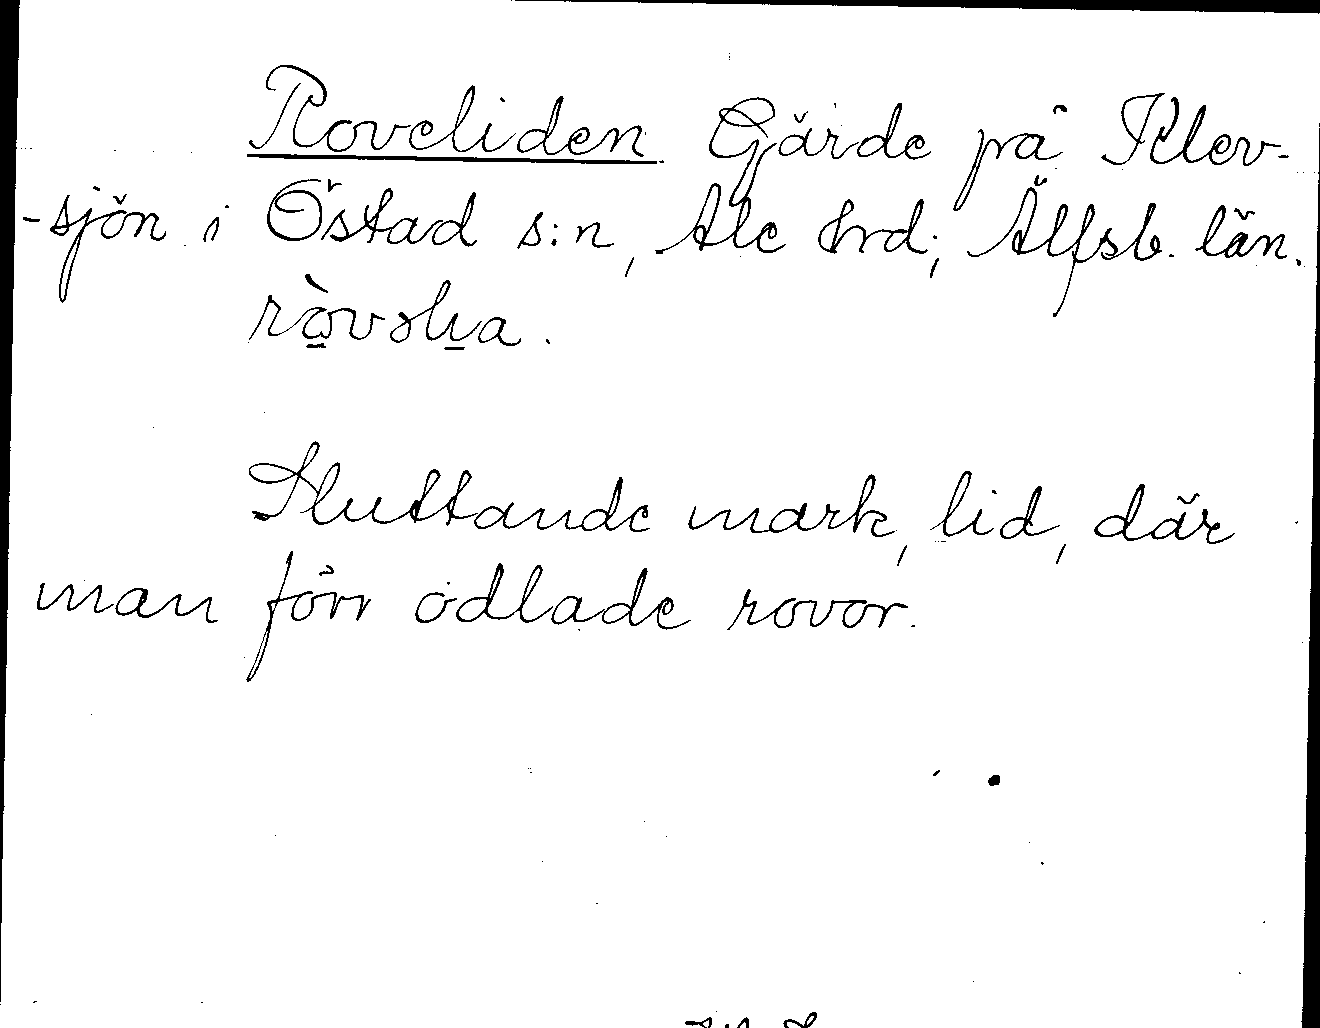 Roveliden. Gärde på Klev-
-sjön i Östad s:n, Ale hrd; Älfsb. län.
Sluttande mark, lid, där
man förr odlade rovor.